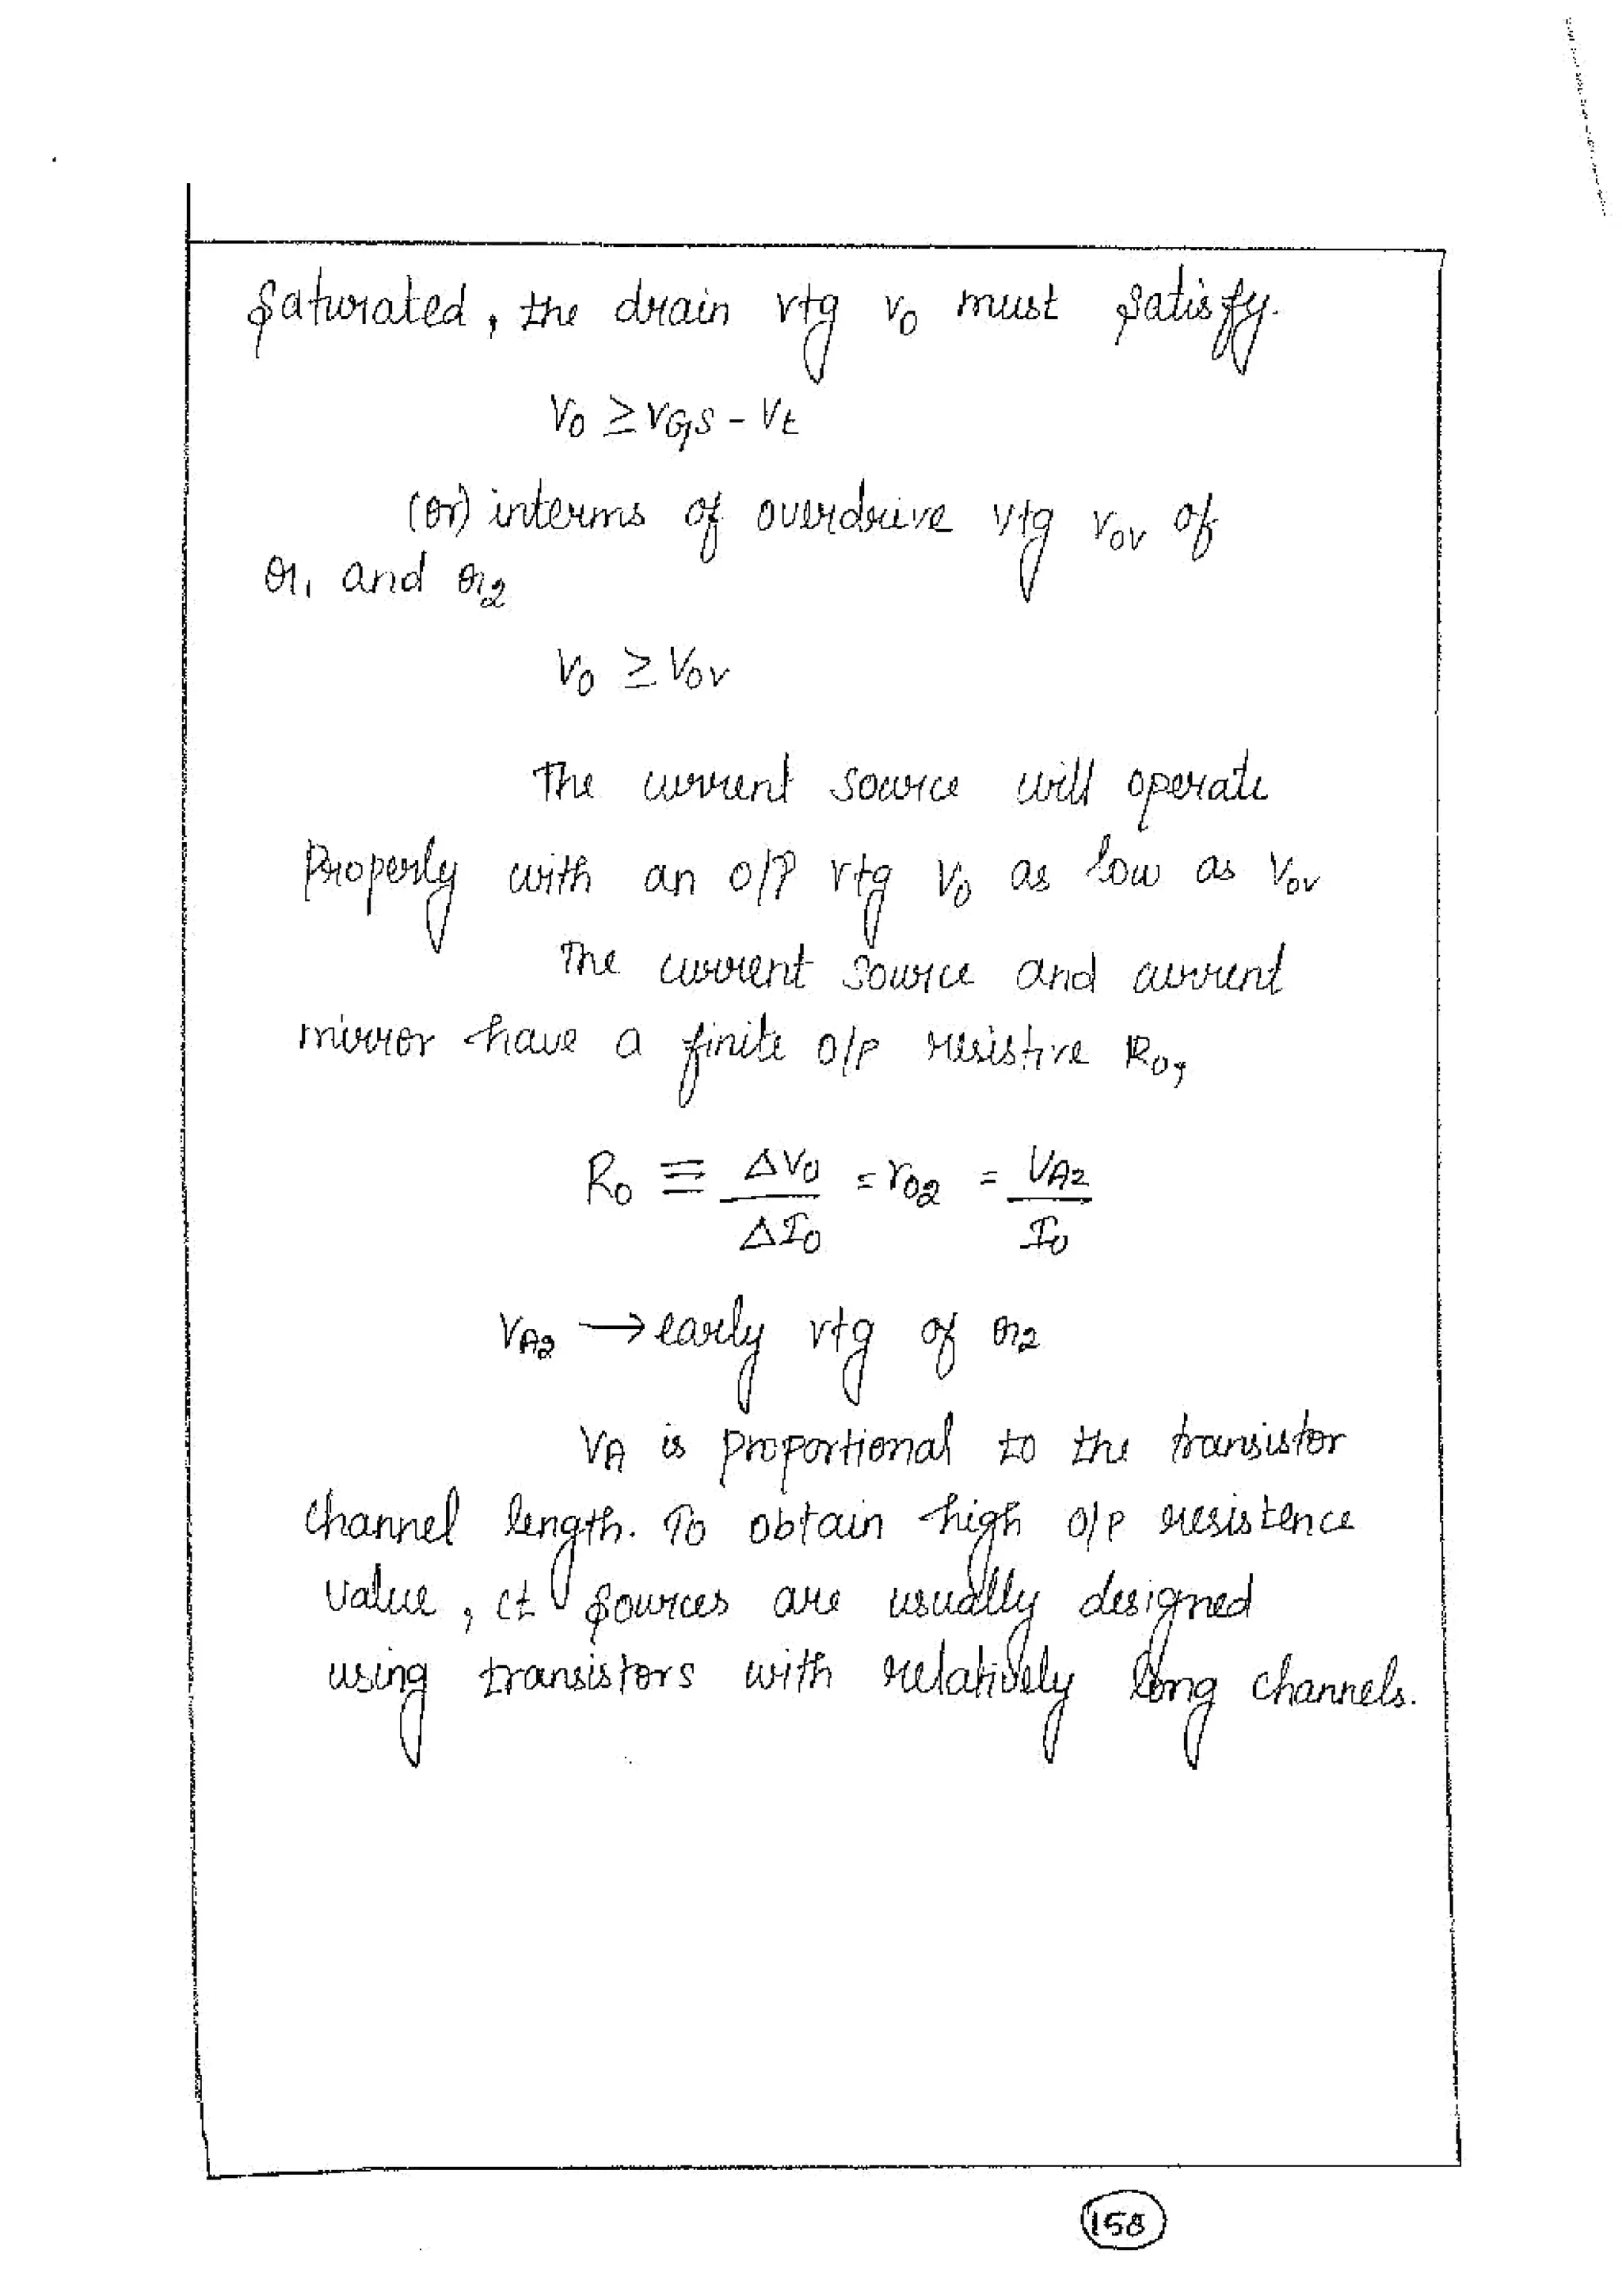 saturated, the drain vtg V₀ must satisfy.
V₀ ≥ VGS - Vt
(or) interms of overdrive vtg Vov of
Q1 and Q2
V₀ ≥ Vov
The current source will operate
Properly with an O/P vtg V₀ as low as Vov
The current source and current
mirror have a finite O/P resistive R₀,
R₀ ≡ ΔV₀/ΔI₀ = r₀₂ = VA2/I₀
VA2 → early vtg of Q2
VA is proportional to the transistor
channel length. To obtain high O/P resistence
value, ct sources are usually designed
using transistors with relatively long channels.
158